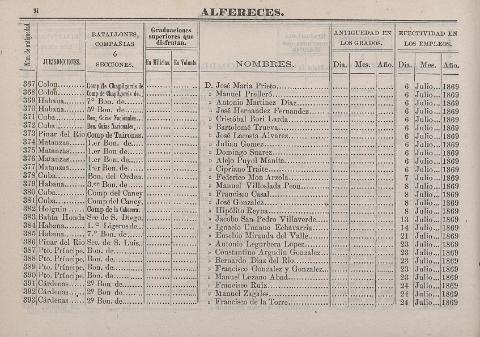 94
ALFERECES.
Núm. de antigüedad.
JURISDICCIONES.
BATALLONES, COMPAÑIAS Ó SECCIONES.
Graduaciones superiores que disfrutan.
En Milicias.
En Volunts
NOMBRES.
ANTIGUEDAD EN LOS GRADOS.
Dia. Mes. Año.
EFECTIVIDAD EN LOS EMPLEOS.
Dia. Mes. Año.
367 Colon Comp de Chapelgorris de D. José Maria Prieto 6 Julio 1869
368 Colon Comp de Chapelgorris de » Manuel Prelleró 6 Julio 1869
369 Habana 7º Bon. de » Antonio Martinez Diaz 6 Julio 1869
370 Habana 5º Bon. de » José Hernandez Fernandez 6 Julio 1869
371 Cuba Bon. Guias Nacionales » Cristóbal Bori Larda 6 Julio 1869
372 Cuba Bon. Guias Nacionales » Bartolomé Trueva 6 Julio 1869
373 Pinar del Rio Comp de Tairones » José Lacosta Alvarez 6 Julio 1869
374 Matanzas 1.er Bon. de » Julian Gomez 6 Julio 1869
375 Matanzas 1.er Bon. de » Domingo Suarez 6 Julio 1869
376 Matanzas 1.er Bon. de » Alejo Puyol Manita 6 Julio 1869
377 Matanzas 1.er Bon. de » Cipriano Traite 6 Julio 1869
378 Cuba Bon. del Orden » Federico Mon Arzola 7 Julio 1869
379 Habana 3.er Bon. de » Manuel Villoslada Peon 8 Julio 1869
380 Cuba Comp del Caney » Francisco Casal 8 Julio 1869
381 Cuba Comp del Caney » José Gonzalez 8 Julio 1869
382 Holguin Comp de la » Hipólito Reyna 8 Julio 1869
383 Bahia Honda Sec de S. Diego » Jacobo San Pedro Villaverde 13 Julio 1869
384 Habana 1.º Ligeros de » Ignacio Uncano Echavarria 14 Julio 1869
385 Habana 7.º Bon. de » Eusebio Miranda del Valle 21 Julio 1869
386 Pinar del Rio Sec de S. Luis » Antonio Legurbera Lopez 23 Julio 1869
387 Pto. Príncipe Bon. de » Constantino Argudin Gonzalez 23 Julio 1869
388 Pto. Príncipe Bon. de » Bernardo Diaz del Rio 23 Julio 1869
389 Pto. Príncipe Bon. de » Francisco Gonzalez y Gonzalez 23 Julio 1869
390 Pto. Príncipe Bon. de » Manuel Lozano Abad 23 Julio 1869
391 Cárdenas 2º Bon de » Francisco Ruiz 24 Julio 1869
392 Cárdenas 2º Bon de » Manuel Zigales 24 Julio 1869
393 Cárdenas 2º Bon de » Francisco de la Torre 24 Julio 1869